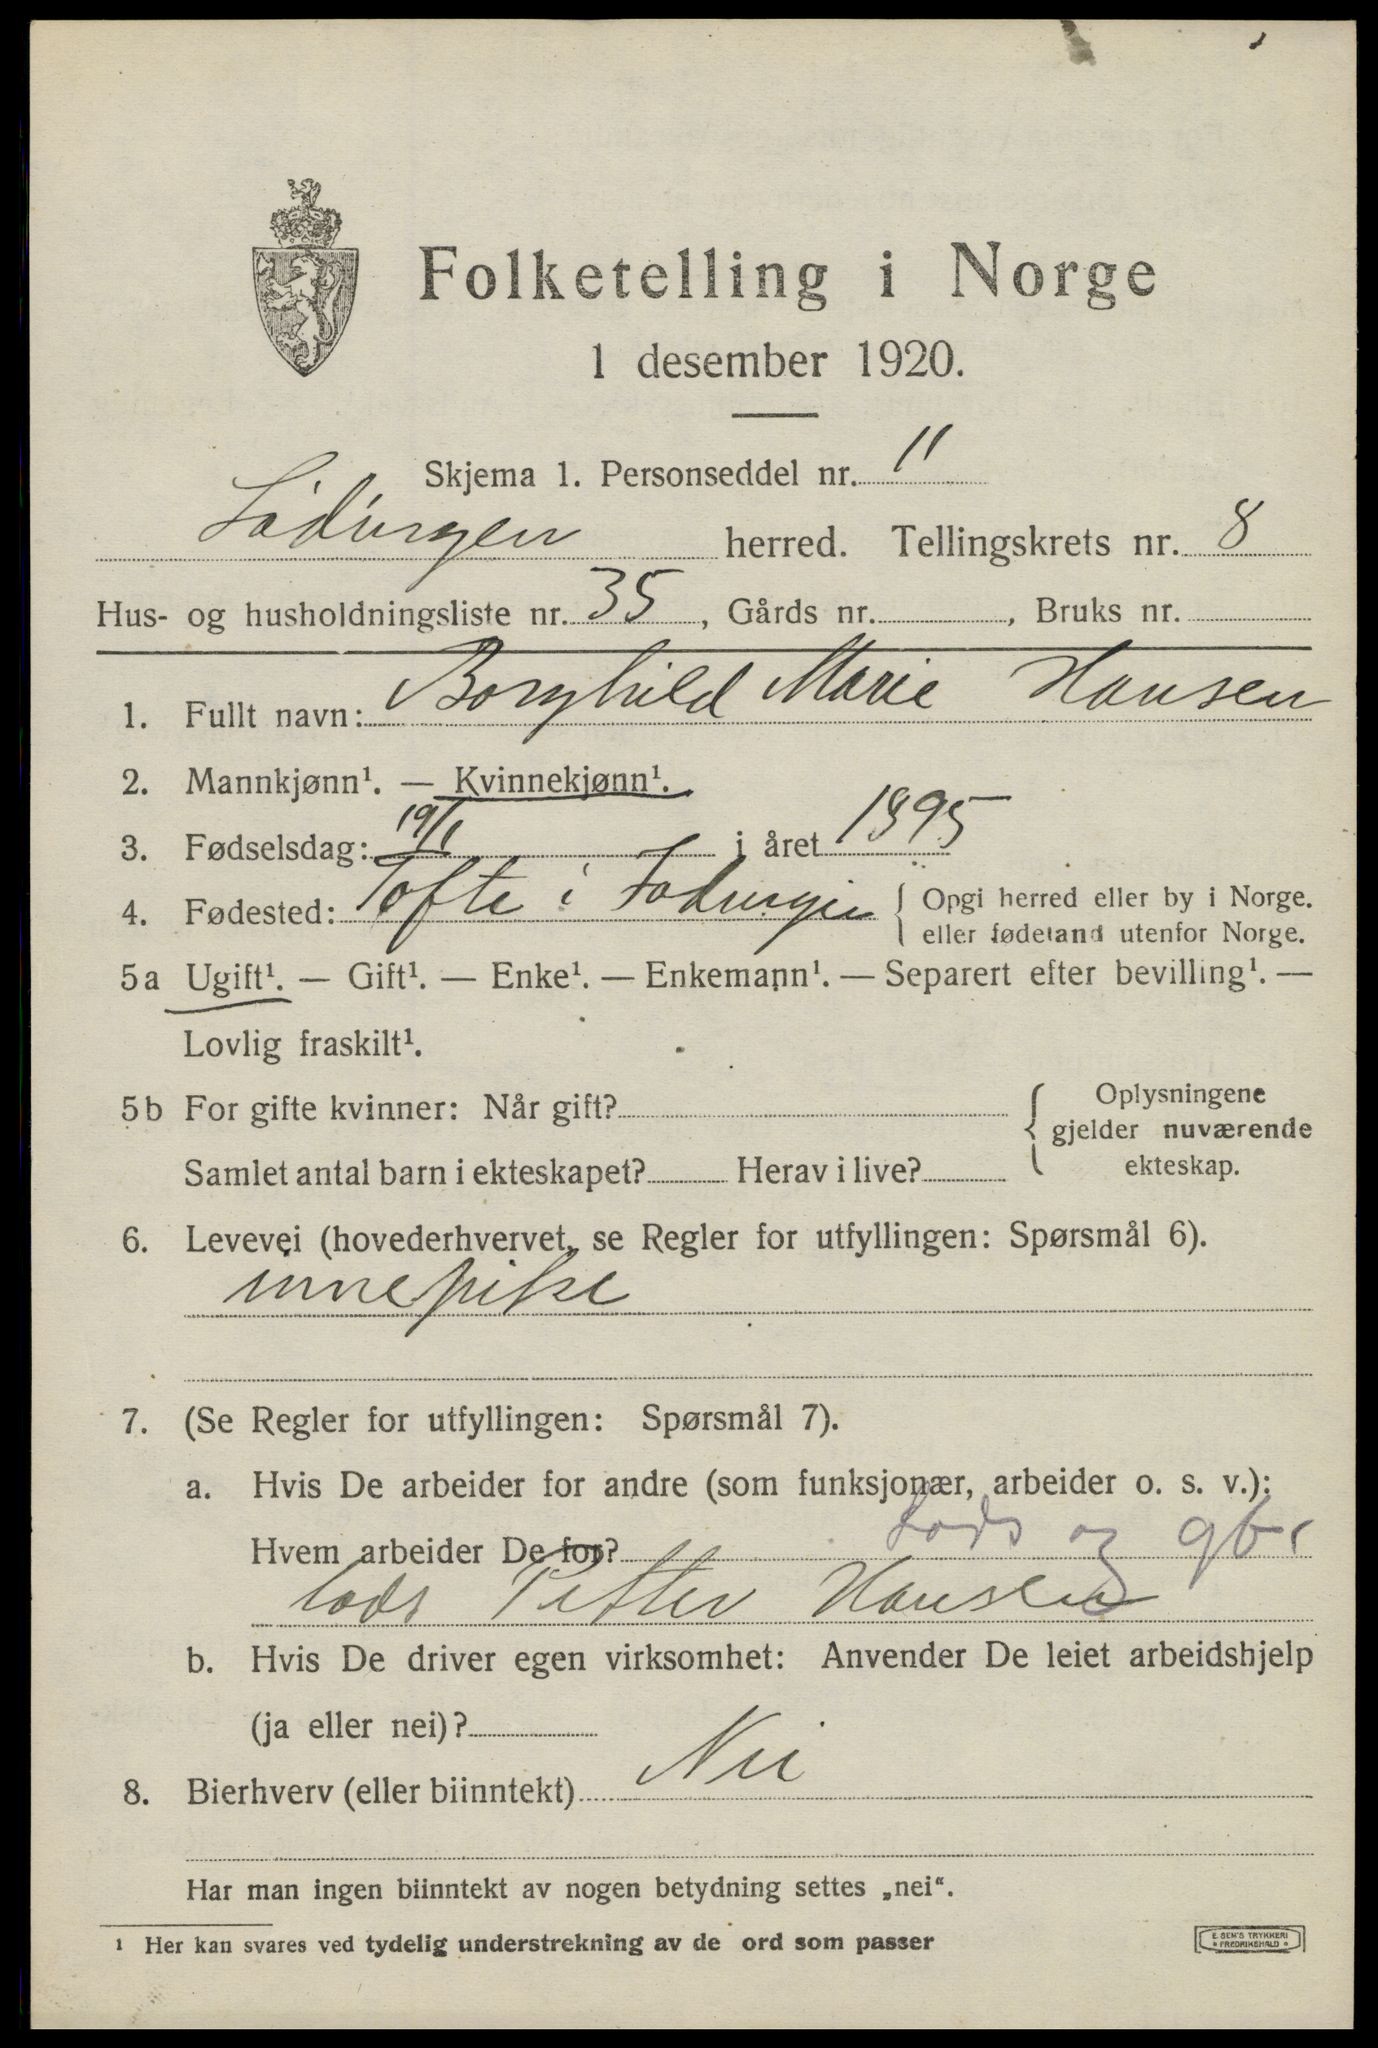 Folketelling i Norge
1 desember 1920.
Skjema 1. Personseddel nr. 11
Lødingen herred. Tellingskrets nr. 8
Hus- og husholdningsliste nr. 35, Gårds nr. , Bruks nr.
1. Fullt navn: Borghild Marie Hansen
2. Mannkjønn¹. — Kvinnekjønn¹.
3. Fødselsdag: 19/1 i året 1895
4. Fødested: Tofte i Lødingen { Opgi herred eller by i Norge.
eller fødeland utenfor Norge.
5a Ugift¹. — Gift¹. — Enke¹. — Enkemann¹. — Separert efter bevilling¹. —
Lovlig fraskilt¹.
5b For gifte kvinner: Når gift? { Oplysningene
gjelder nuværende
Samlet antal barn i ekteskapet? Herav i live? ekteskap.
6. Levevei (hovederhvervet, se Regler for utfyllingen: Spørsmål 6).
innepike
7. (Se Regler for utfyllingen: Spørsmål 7).
a. Hvis De arbeider for andre (som funksjonær, arbeider o. s. v.):
Hvem arbeider De for? Lods og gbr
lods Petter Hansen
b. Hvis De driver egen virksomhet: Anvender De leiet arbeidshjelp
(ja eller nei)?
8. Bierhverv (eller biinntekt) Nei
Har man ingen biinntekt av nogen betydning settes „nei“.
¹ Her kan svares ved tydelig understrekning av de ord som passer
E. SEM'S TRYKKERI
• FREDRIKSHALD •